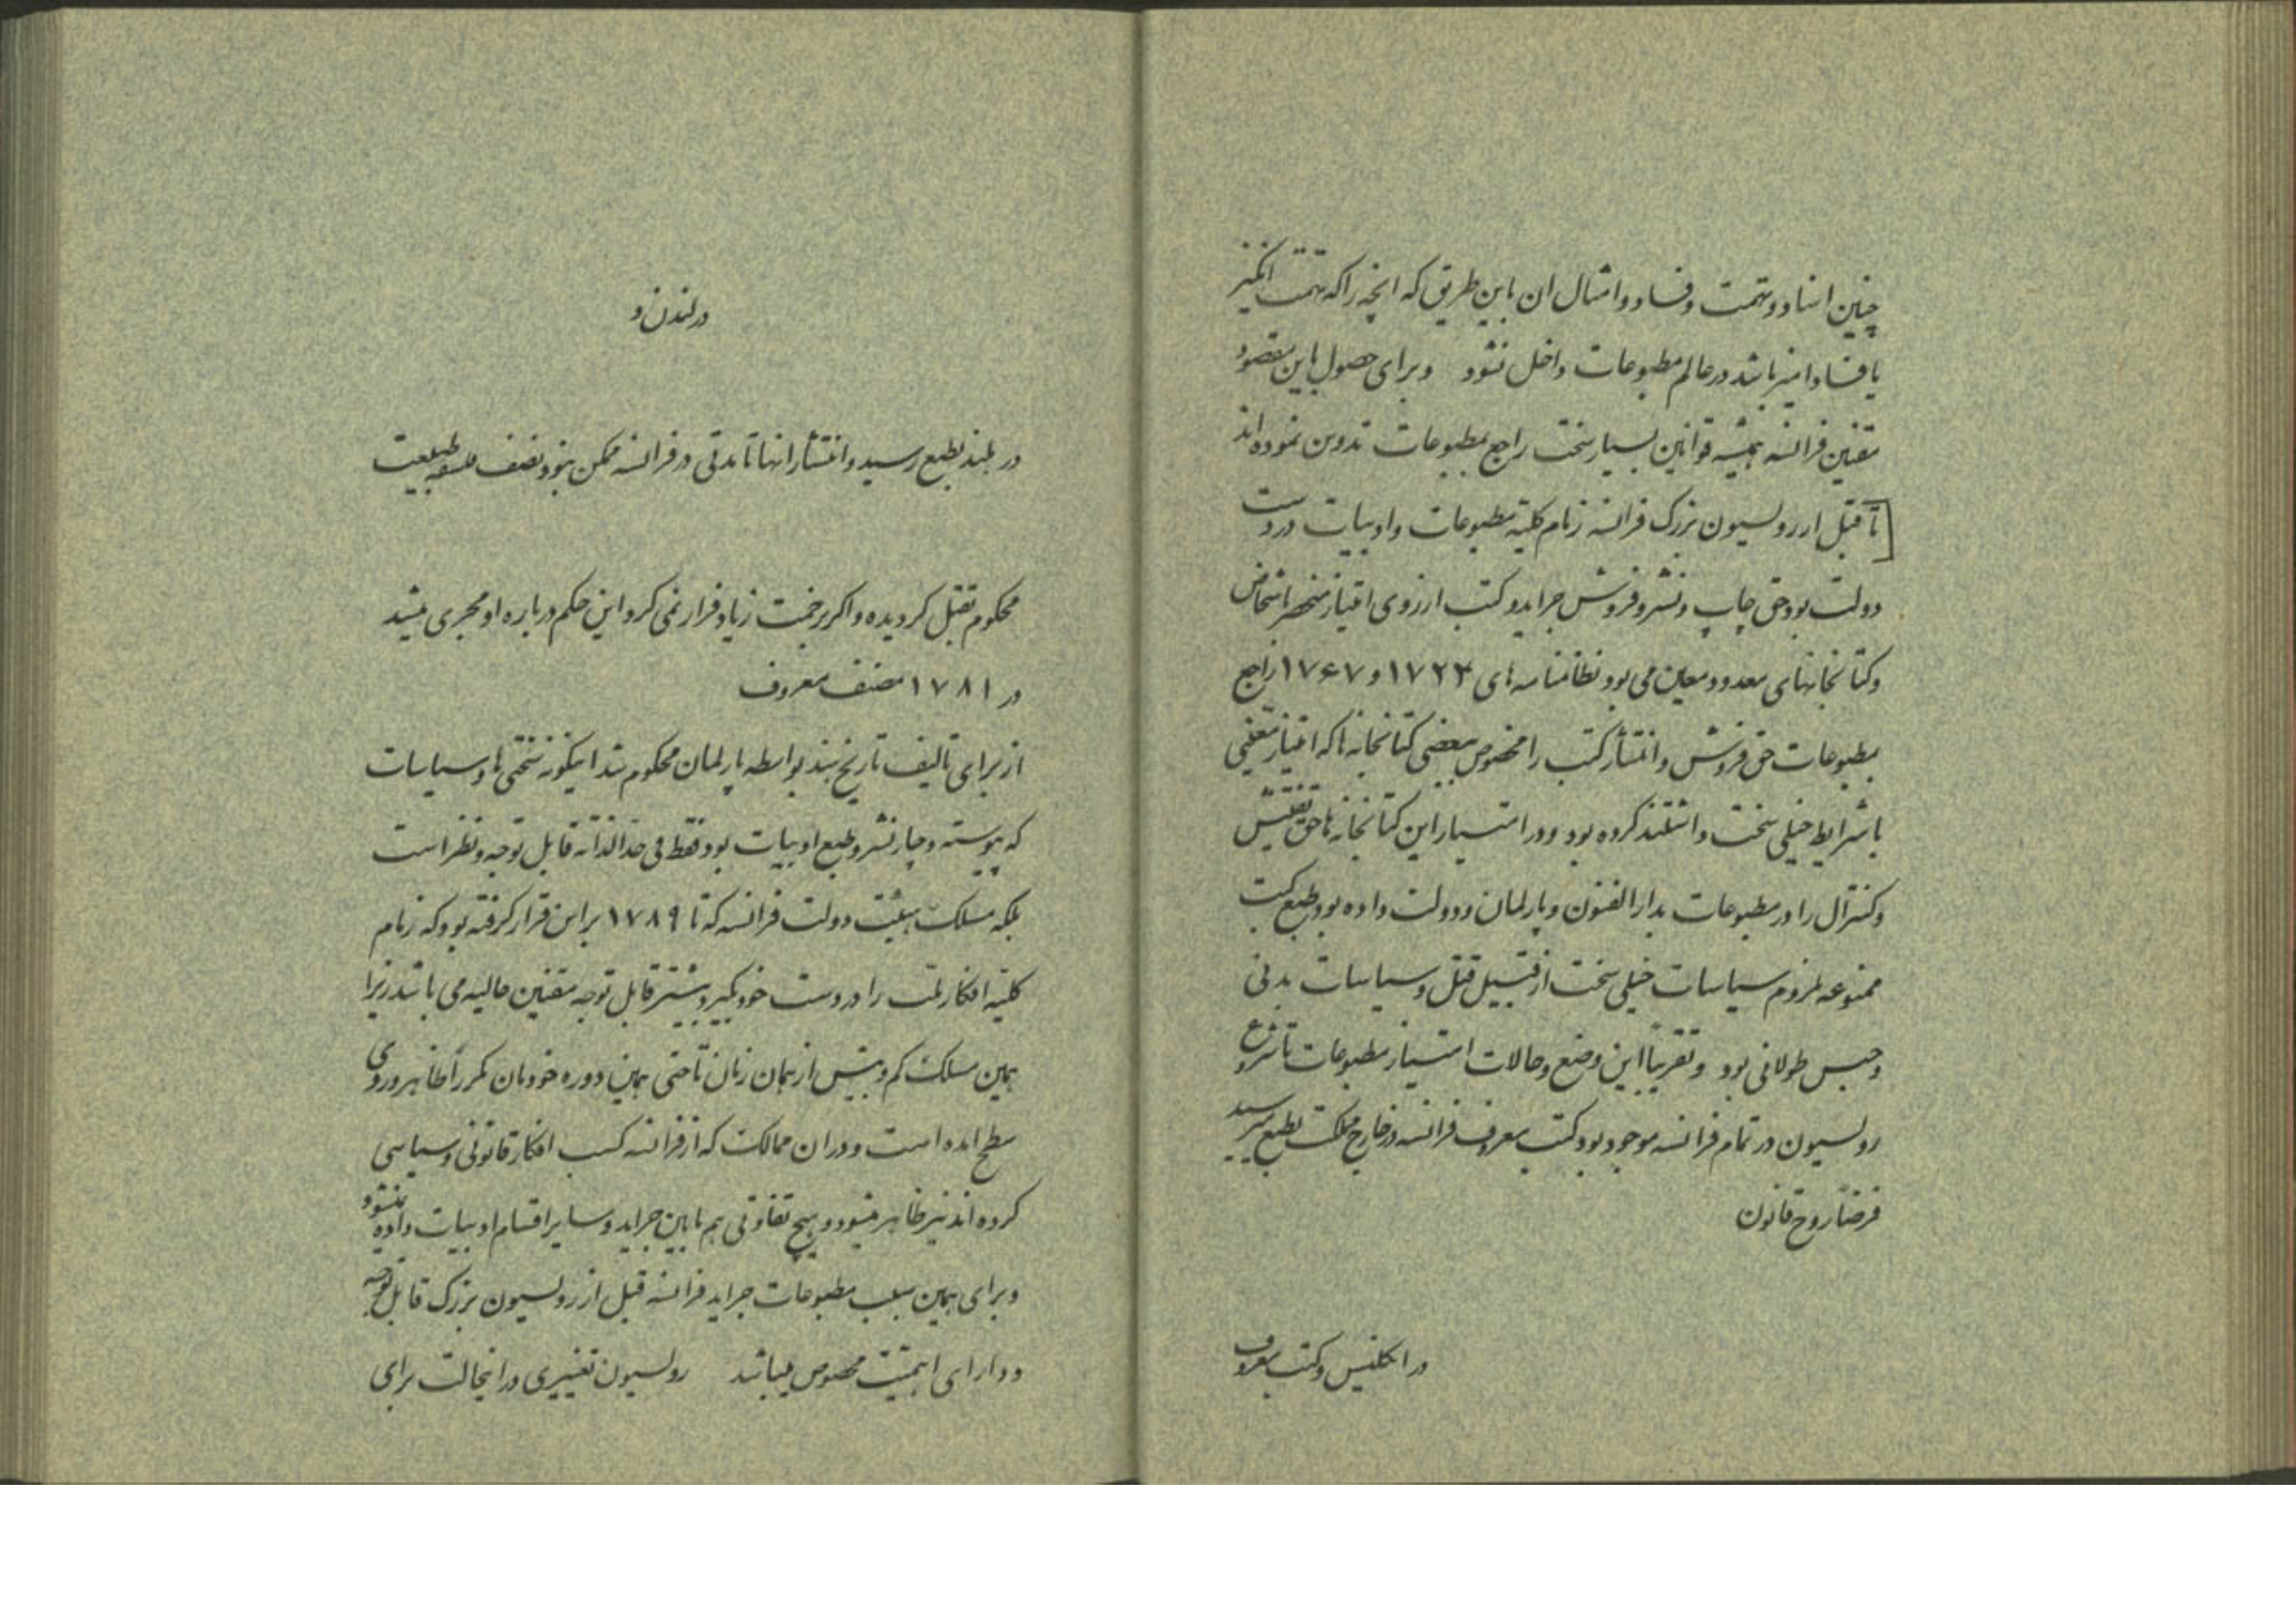 چنین اسناد و تهمت و فساد و امثال ان باین طریق که انچه را که تهمت انگیز
یا فساد امیز باشد در عالم مطبوعات داخل نشود وبرای حصول باین مقصود
مقنین فرانسه همیشه قوانین بسیار سخت راجع بمطبوعات تدوین نموده اند
[تا قبل از رولسیون بزرگ فرانسه زمام کلیه مطبوعات و ادبیات در دست
دولت بود حق چاپ و نشر و فروش جراید و کتب از روی امتیاز منحصر باشخاص
و کتابخانهای معدود و معین می بود نظامنامه های ۱۷۲۳ و ۱۷۶۷ راجع
بمطبوعات حق فروش و انتشار کتب را مخصوص بعضی کتابخانه ها که امتیاز
با شرایط خیلی سخت داشتند کرده بود و در امتیاز این کتابخانه ها حق تفتیش
و کنترال را در مطبوعات بدارالفنون و پارلمان و دولت داده بود طبع کتب
ممنوعه ملزوم سیاسات خیلی سخت از قبیل قتل و سیاسات بدنی
و حبس طولانی بود و تقریباً این وضع و حالات امتیاز مطبوعات تا شروع
رولسیون در تمام فرانسه موجود بود کتب معروف فرانسه در خارج مملکت بطبع میرسید
فرضاً روح قانون
در انگلیس و کتب معروف
در لندن و
در بطبع رسید و انتشار انها تا مدتی در فرانسه ممکن نبود مصنف
محکوم بقتل گردیده و اگر برحمت زیاد فرار نمی کرد این حکم درباره او مجری میشد
در ۱۷۸۱ مصنف معروف
از برای تالیف تاریخ هند بواسطه پارلمان محکوم شد اینگونه سختی ها و سیاسات
که پیوسته دچار نشر و طبع ادبیات بود نه فقط فی حد الذاته قابل توجه و نظر است
بلکه مسلک هیئت دولت فرانسه که تا ۱۷۸۹ بر این قرار گرفته بود که زمام
کلیه افکار ملت را در دست خود بگیرد بیشتر قابل توجه مقنین حالیه می باشد زیرا
همین مسلک کم و بیش از همان زمان تا حتی همین دوره خودمان مکرراً ظاهر و روی
سطح امده است و در ان ممالک که از فرانسه کسب افکار قانونی و سیاسی
کرده اند نیز ظاهر میشود و هیچ تفاوتی هم مابین جراید و سایر اقسام ادبیات داده نمیشود
و برای همین سبب مطبوعات جراید فرانسه قبل از رولسیون بزرگ قابل توجه
و دارای اهمیت مخصوص میباشد رولسیون تغییری در انحالت برای